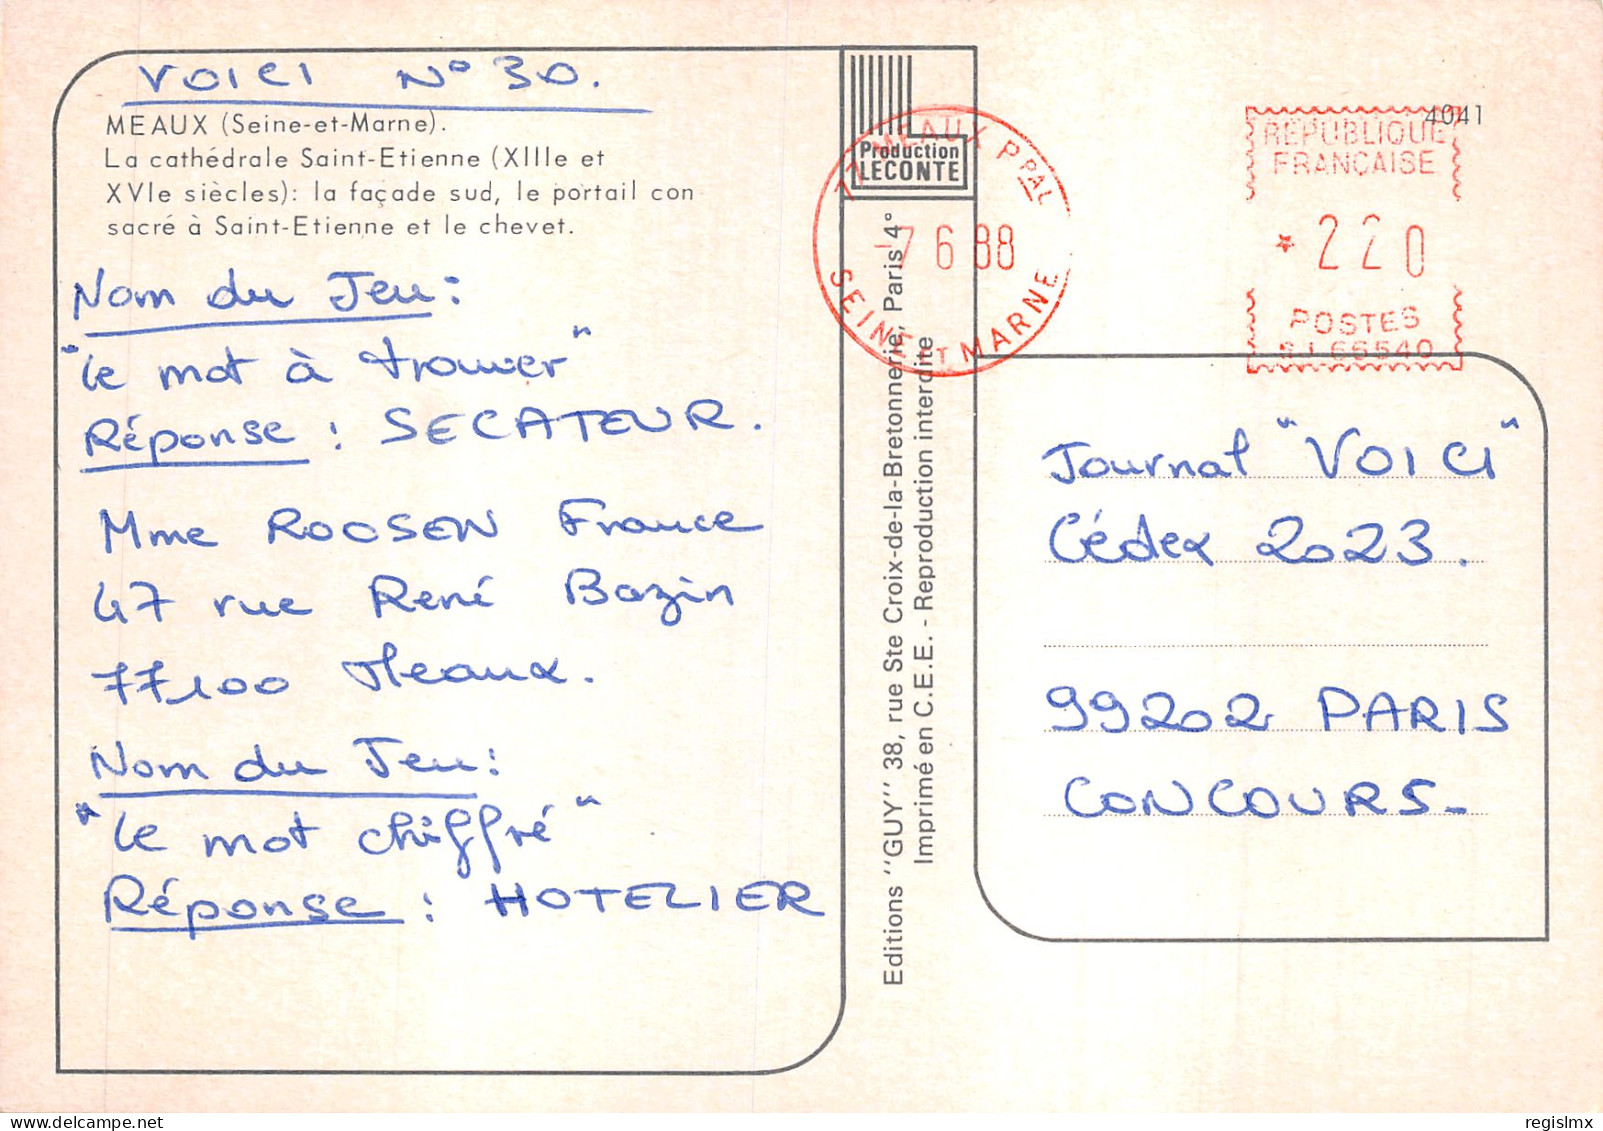 VOICI N° 30.
MEAUX (Seine-et-Marne).
La cathédrale Saint-Etienne (XIIIe et
XVIe siècles): la façade sud, le portail con
sacré à Saint-Etienne et le chevet.
Nom du Jeu:
"Le mot à trouver"
Réponse : SECATEUR.
Mme ROOSEN France
47 rue René Bazin
77100 Meaux.
Nom du Jeu:
"Le mot chiffré"
Réponse : HOTELIER
Production
LECONTE
Editions "GUY" 38, rue Ste Croix-de-la-Bretonnerie, Paris 4°
Imprimé en C.E.E. - Reproduction interdite
77 MEAUX PPAL
7 6 88
SEINE ET MARNE
4041
REPUBLIQUE
FRANÇAISE
* 220
POSTES
66540
Journal "VOICI"
Cédex 2023.
99202 PARIS
CONCOURS-
regislmx